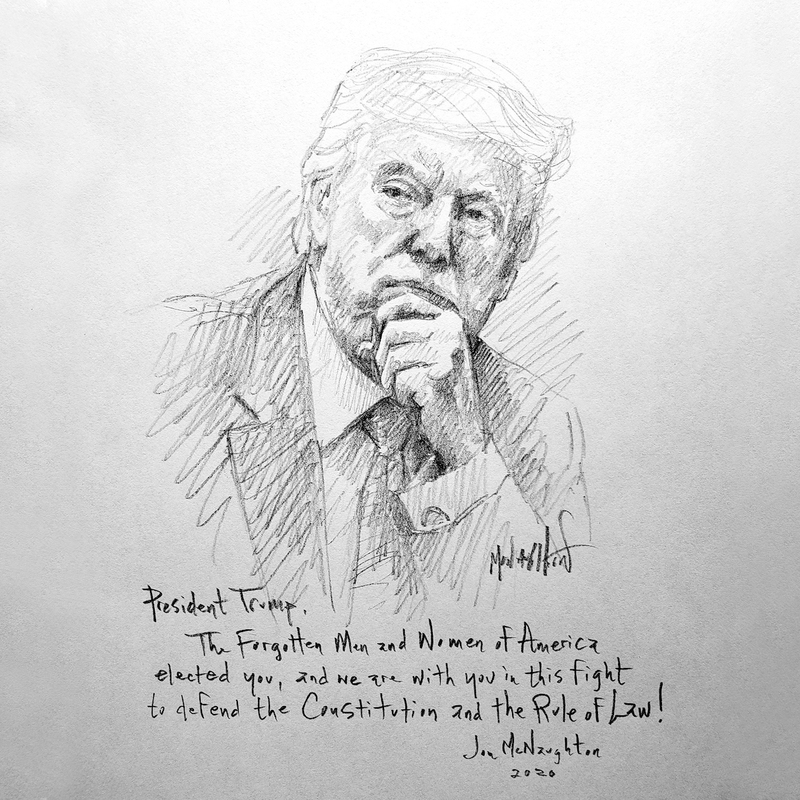 McNaughton
President Trump,
The Forgotten Men and Women of America
elected you, and we are with you in this fight
to defend the Constitution and the Rule of Law!
Jon McNaughton
2020